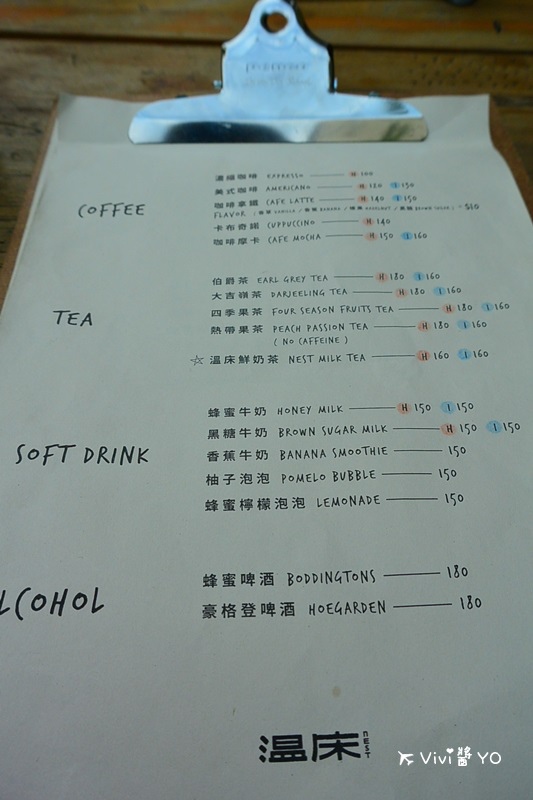 COFFEE
濃縮咖啡 ESPRESSO H 100
美式咖啡 AMERICANO H 120 I 130
咖啡拿鐵 CAFE LATTE H 140 I 150
FLAVOR +$20
卡布奇諾 CUPPUCCINO H 140
咖啡摩卡 CAFE MOCHA H 150 I 160
TEA
伯爵茶 EARL GREY TEA H 180 I 160
大吉嶺茶 DARJEELING TEA H 180 I 160
四季果茶 FOUR SEASON FRUITS TEA H 180 I 160
熱帶果茶 PEACH PASSION TEA H 180 I 160
( NO CAFFEINE )
☆ 溫床鮮奶茶 NEST MILK TEA H 160 I 160
SOFT DRINK
蜂蜜牛奶 HONEY MILK H 150 I 150
黑糖牛奶 BROWN SUGAR MILK H 150 I 150
香蕉牛奶 BANANA SMOOTHIE 150
柚子泡泡 POMELO BUBBLE 150
蜂蜜檸檬泡泡 LEMONADE 150
LCOHOL
蜂蜜啤酒 BODDINGTONS 180
豪格登啤酒 HOEGARDEN 180
温床 nEST
Vivi醬YO